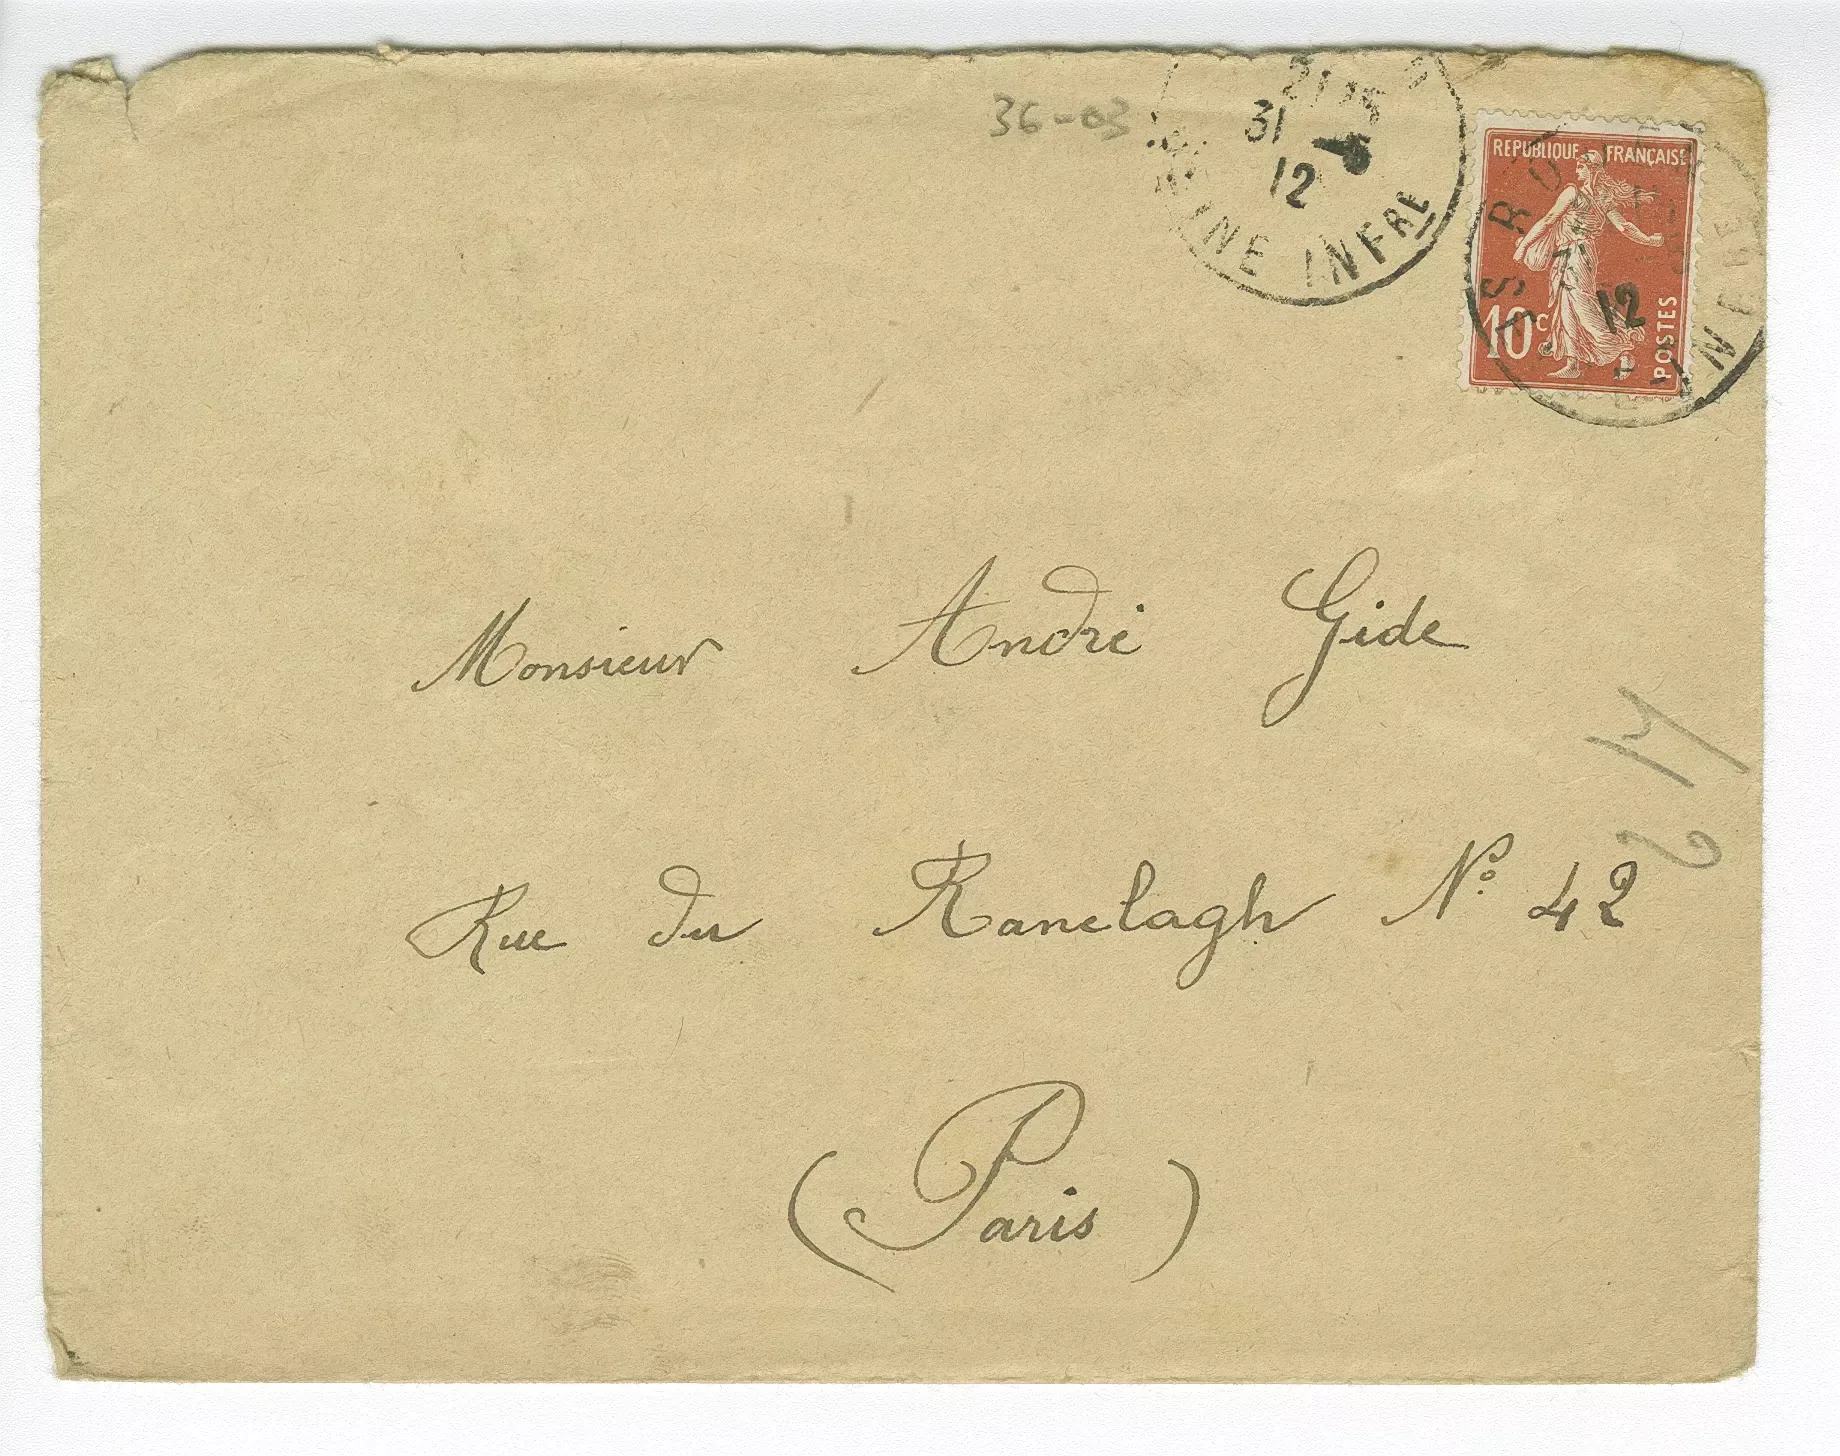 36-03
31
12
INE INFRE
REPUBLIQUE FRANÇAISE
10c
POSTES
12
Monsieur André Gide
Rue du Ranelagh No 42
(Paris)